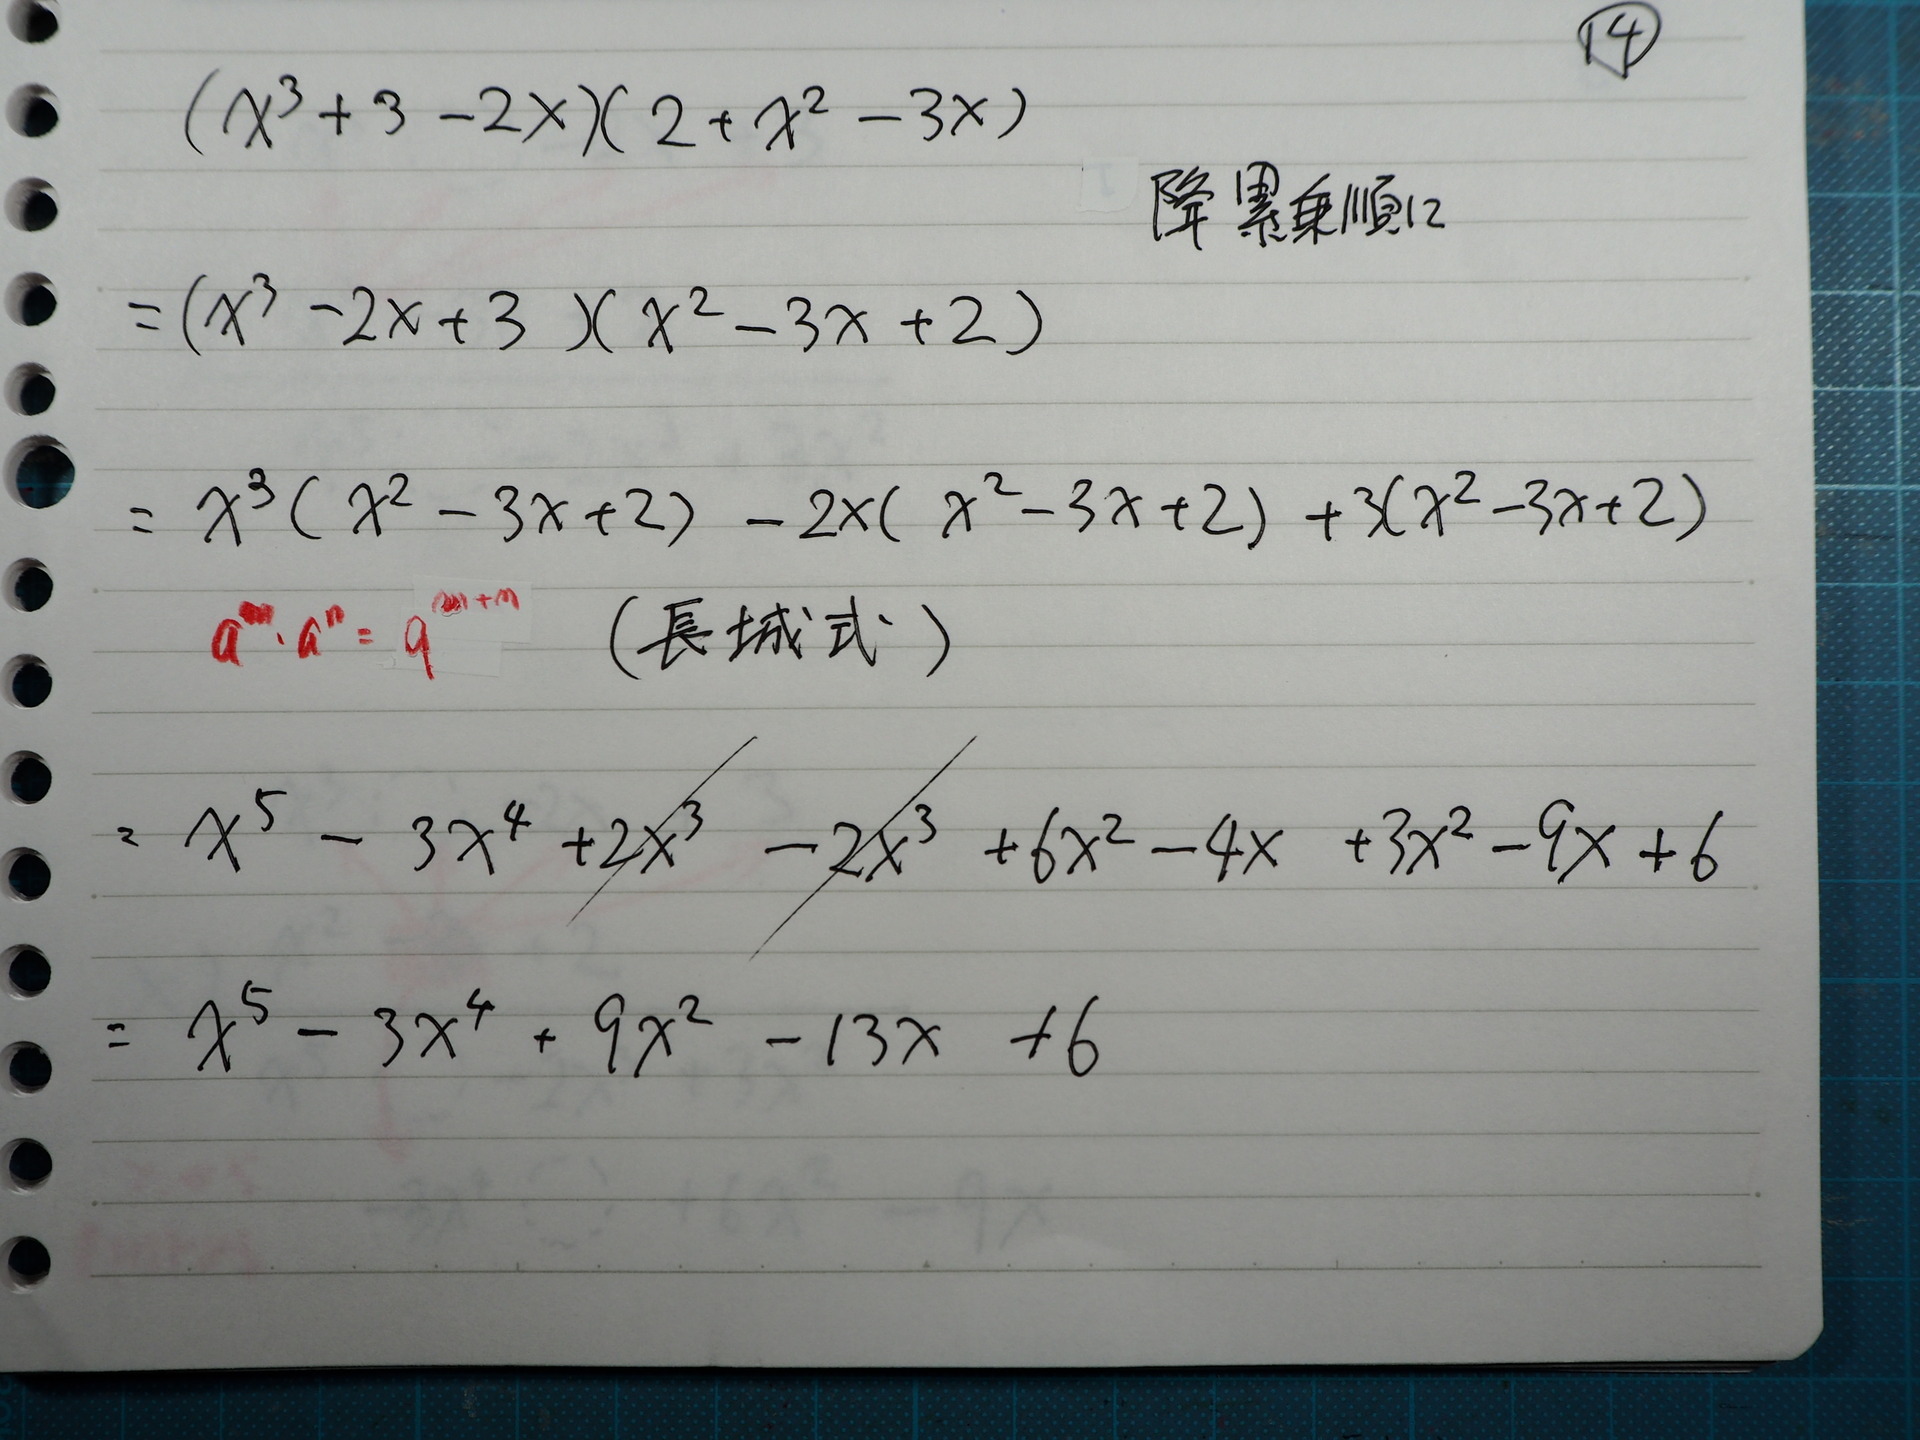 ⑭
(x³+3-2x)(2+x²-3x)
降累乗順に
=(x³-2x+3)(x²-3x+2)
=x³(x²-3x+2)-2x(x²-3x+2)+3(x²-3x+2)
aᵐ·aⁿ=aᵐ⁺ⁿ (長城式)
=x⁵-3x⁴+2x³-2x³+6x²-4x+3x²-9x+6
=x⁵-3x⁴+9x²-13x+6